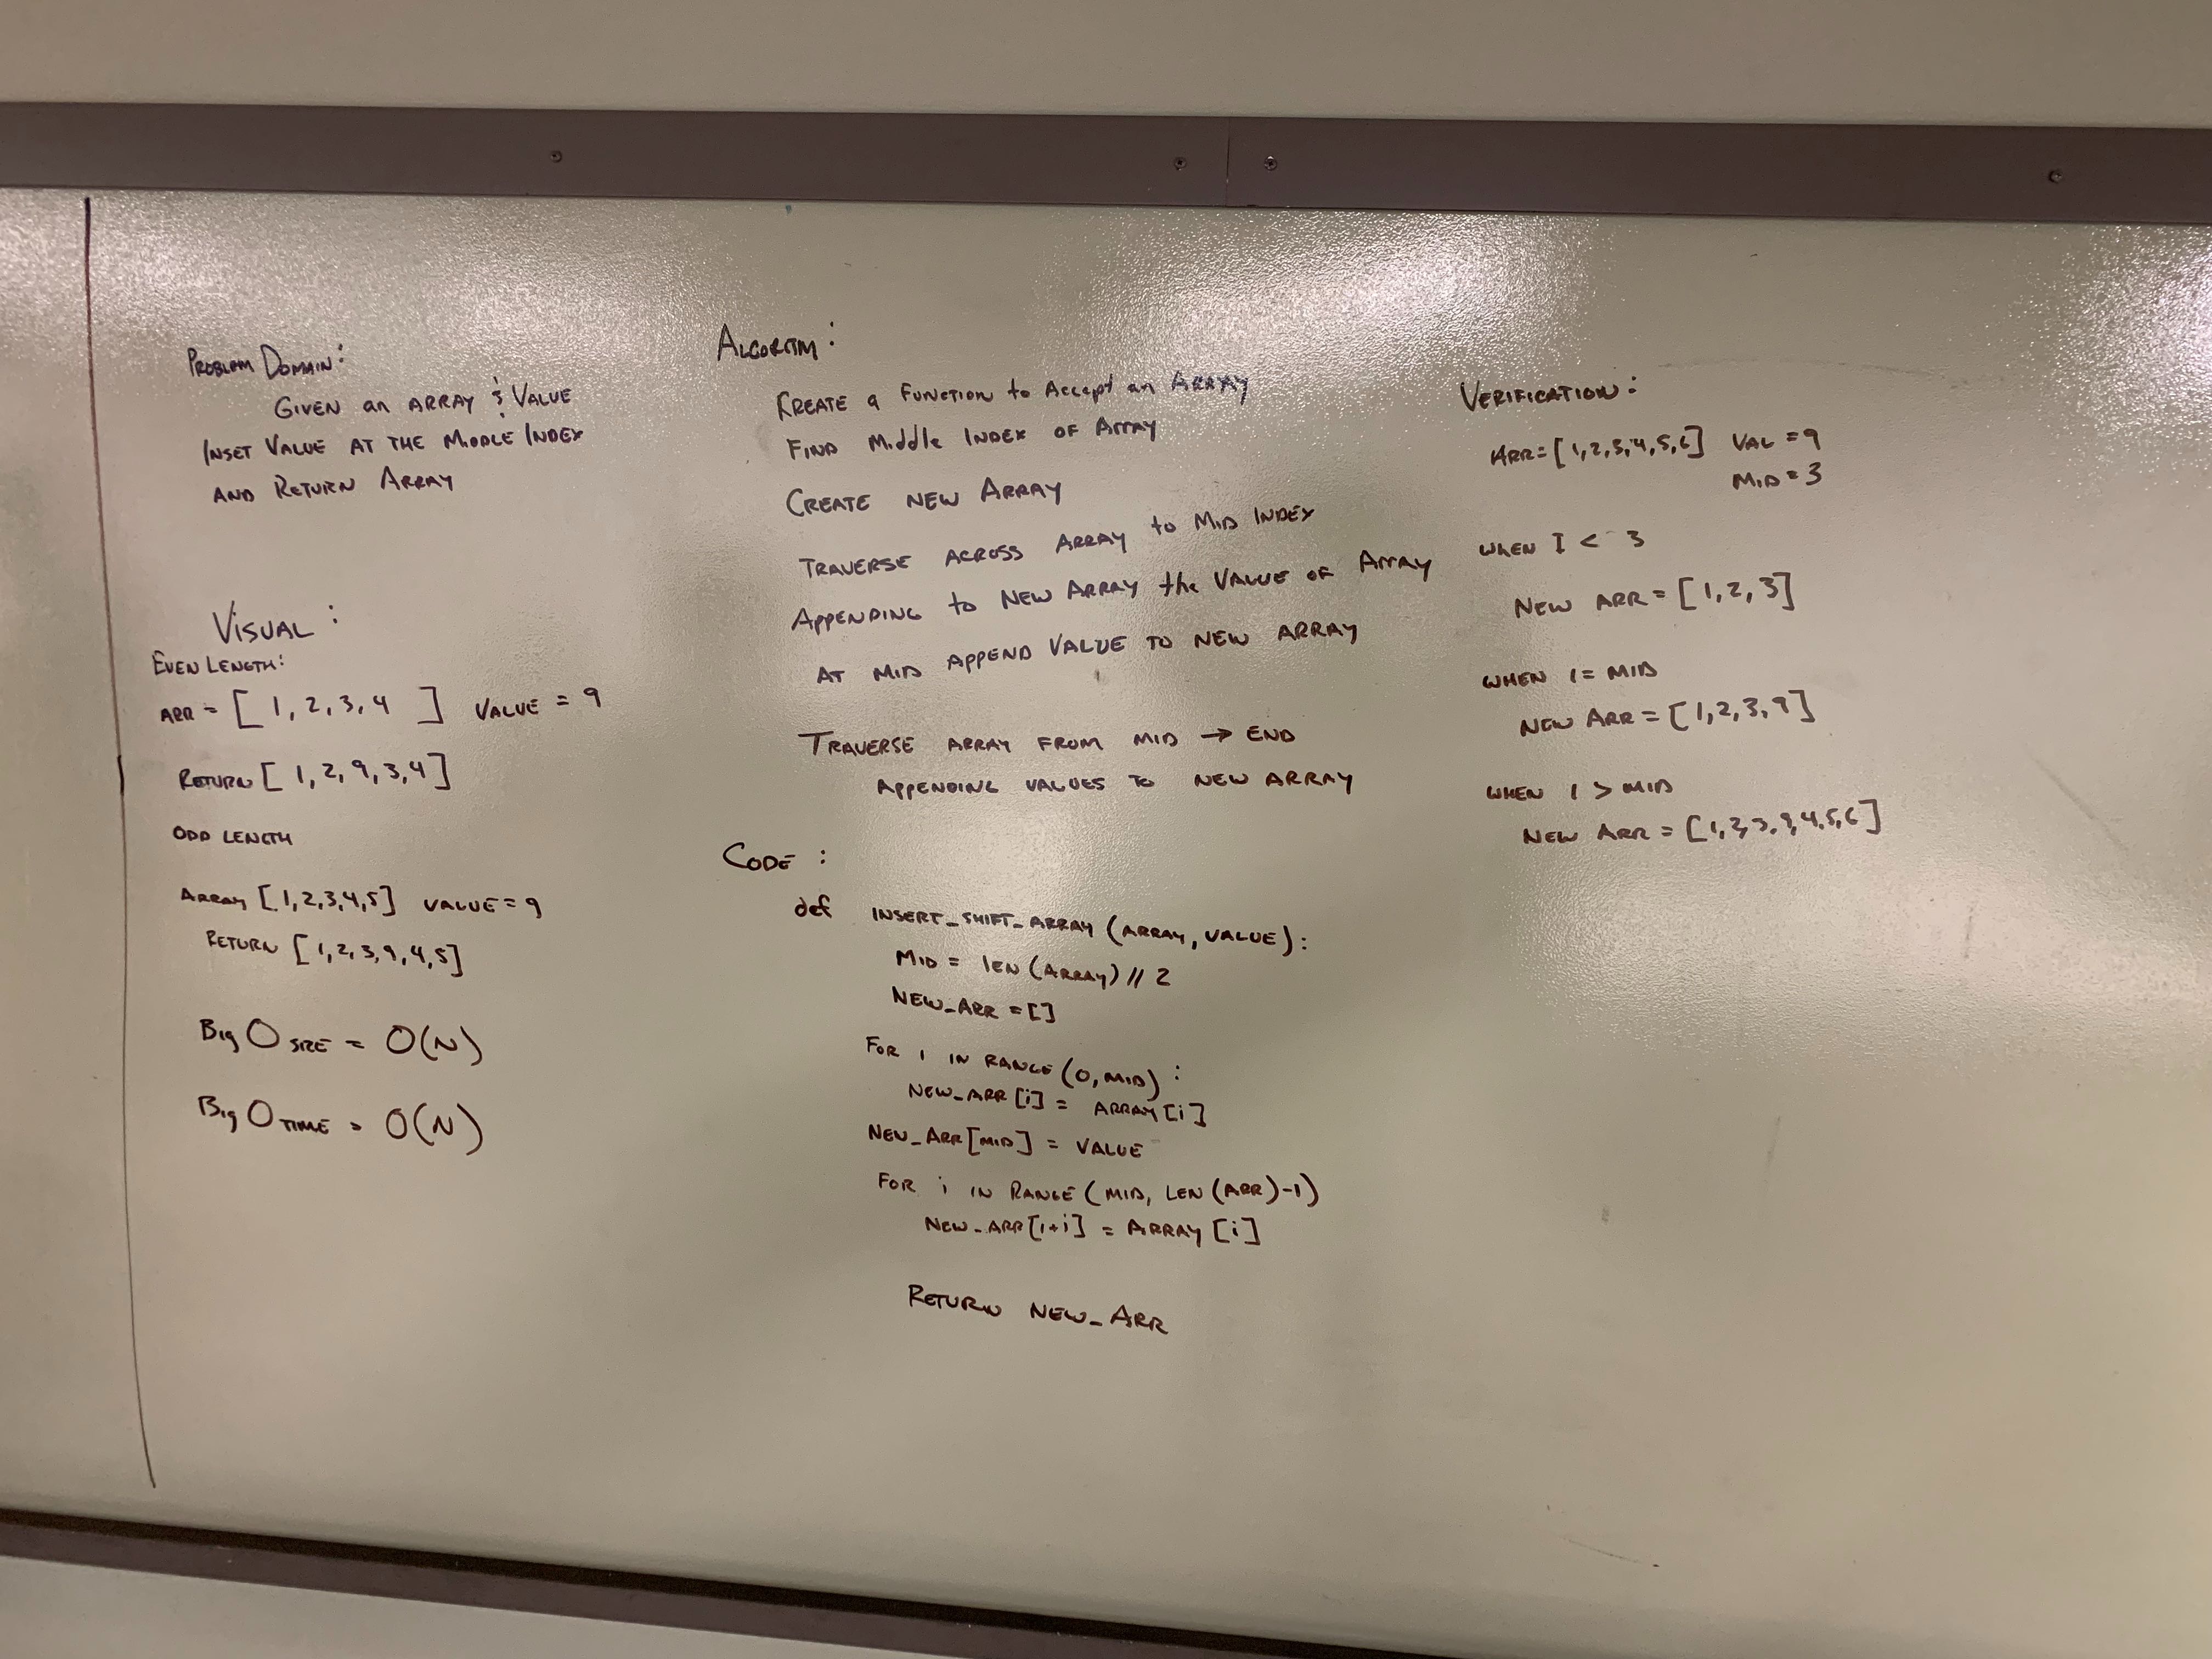 PROBLEM DOMAIN:
GIVEN an ARRAY & VALUE
INSET VALUE AT THE MIDDLE INDEX
AND RETURN ARRAY
VISUAL:
EVEN LENGTH:
ARR = [ 1, 2, 3, 4 ] VALUE = 9
RETURN [ 1, 2, 9, 3, 4 ]
ODD LENGTH
ARRAY [1,2,3,4,5] VALUE = 9
RETURN [1,2,3,9,4,5]
Big O = O(N)
Big O TIME = O(N)
ALGORITM:
CREATE a FUNCTION to Accept an ARRAY
FIND Middle INDEX OF Array
CREATE NEW ARRAY
TRAVERSE ACROSS ARRAY to MID INDEX
APPENDING to NEW ARRAY the VALUE OF Array
AT MID APPEND VALUE TO NEW ARRAY
TRAVERSE ARRAY FROM MID → END
APPENDING VALUES TO NEW ARRAY
CODE:
def INSERT_SHIFT_ARRAY (ARRAY, VALUE):
MID = len (ARRAY) // 2
NEW_ARR = []
FOR i IN RANGE (0, MID):
NEW_ARR [i] = ARRAY [i]
NEW_ARR [MID] = VALUE
FOR i IN RANGE (MID, LEN (ARR) -1)
NEW_ARR [1+i] = ARRAY [i]
RETURN NEW_ARR
VERIFICATION:
ARR = [1,2,3,4,5,6] VAL = 9
MID = 3
WHEN I < 3
NEW ARR = [1,2,3]
WHEN I = MID
NEW ARR = [1,2,3,9]
WHEN I > MID
NEW ARR = [1,2,3,9,4,5,6]